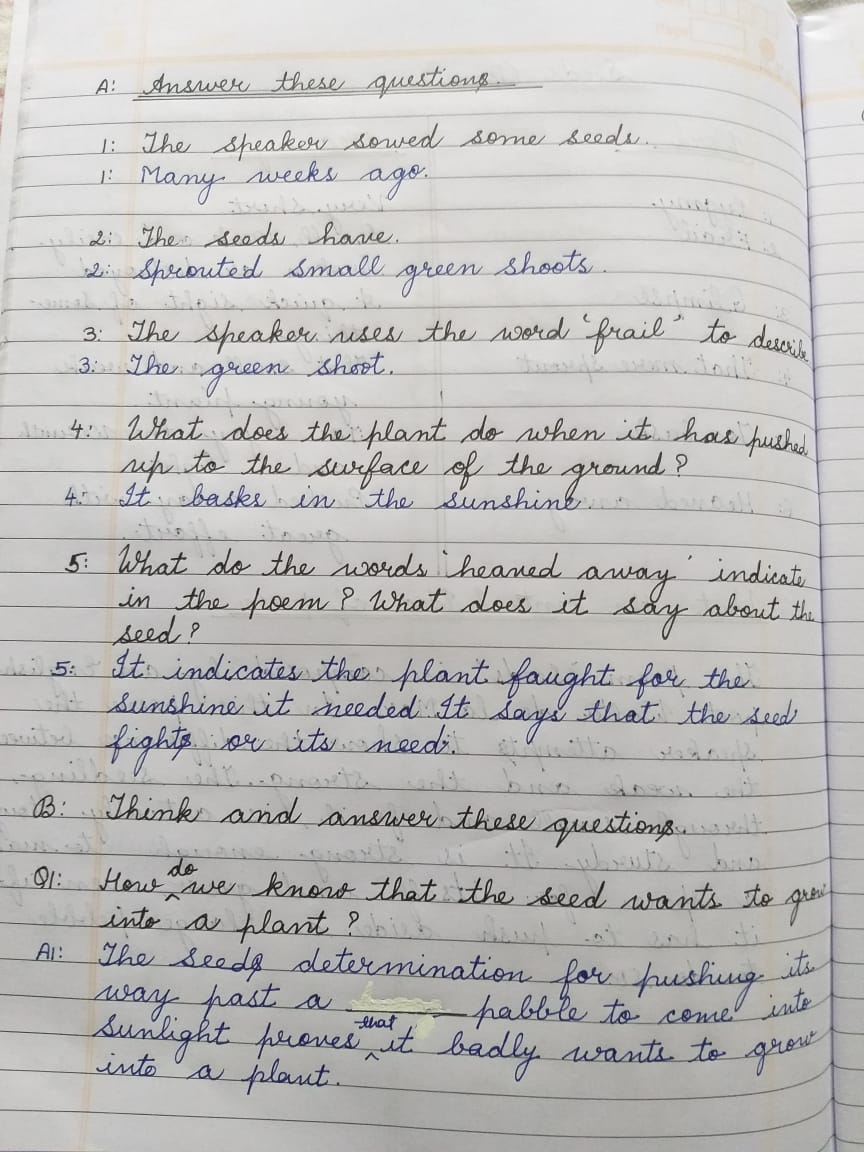 A: Answer these questions.
1: The speaker sowed some seeds.
1: Many weeks ago.
2: The seeds have.
2: Sprouted small green shoots.
3: The speaker uses the word "frail" to describe
3: The green shoot.
4: What does the plant do when it has pushed
up to the surface of the ground?
4: It basks in the sunshine.
5: What do the words 'heaved away' indicate
in the poem? What does it say about the
seed?
5: It indicates the plant faught for the
sunshine it needed. It says that the seed
fights or its need.
B: Think and answer these questions.
Q1: How do we know that the seed wants to grow
into a plant?
A1: The seeds determination for pushing its
way past a pabble to come into
sunlight proves that it badly wants to grow
into a plant.